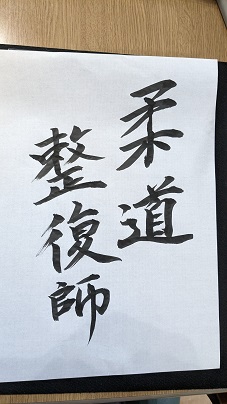 柔道
整復師